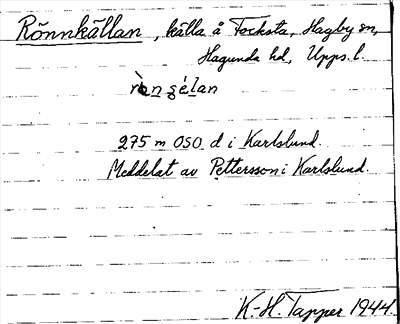 Rönnkällan, källa å Focksta, Hagby sn,
Hagunda hd, Upps. l.
275 m OSO d i Karlslund.
Meddelat av Pettersson i Karlslund.
K-H. Tapper 1944.